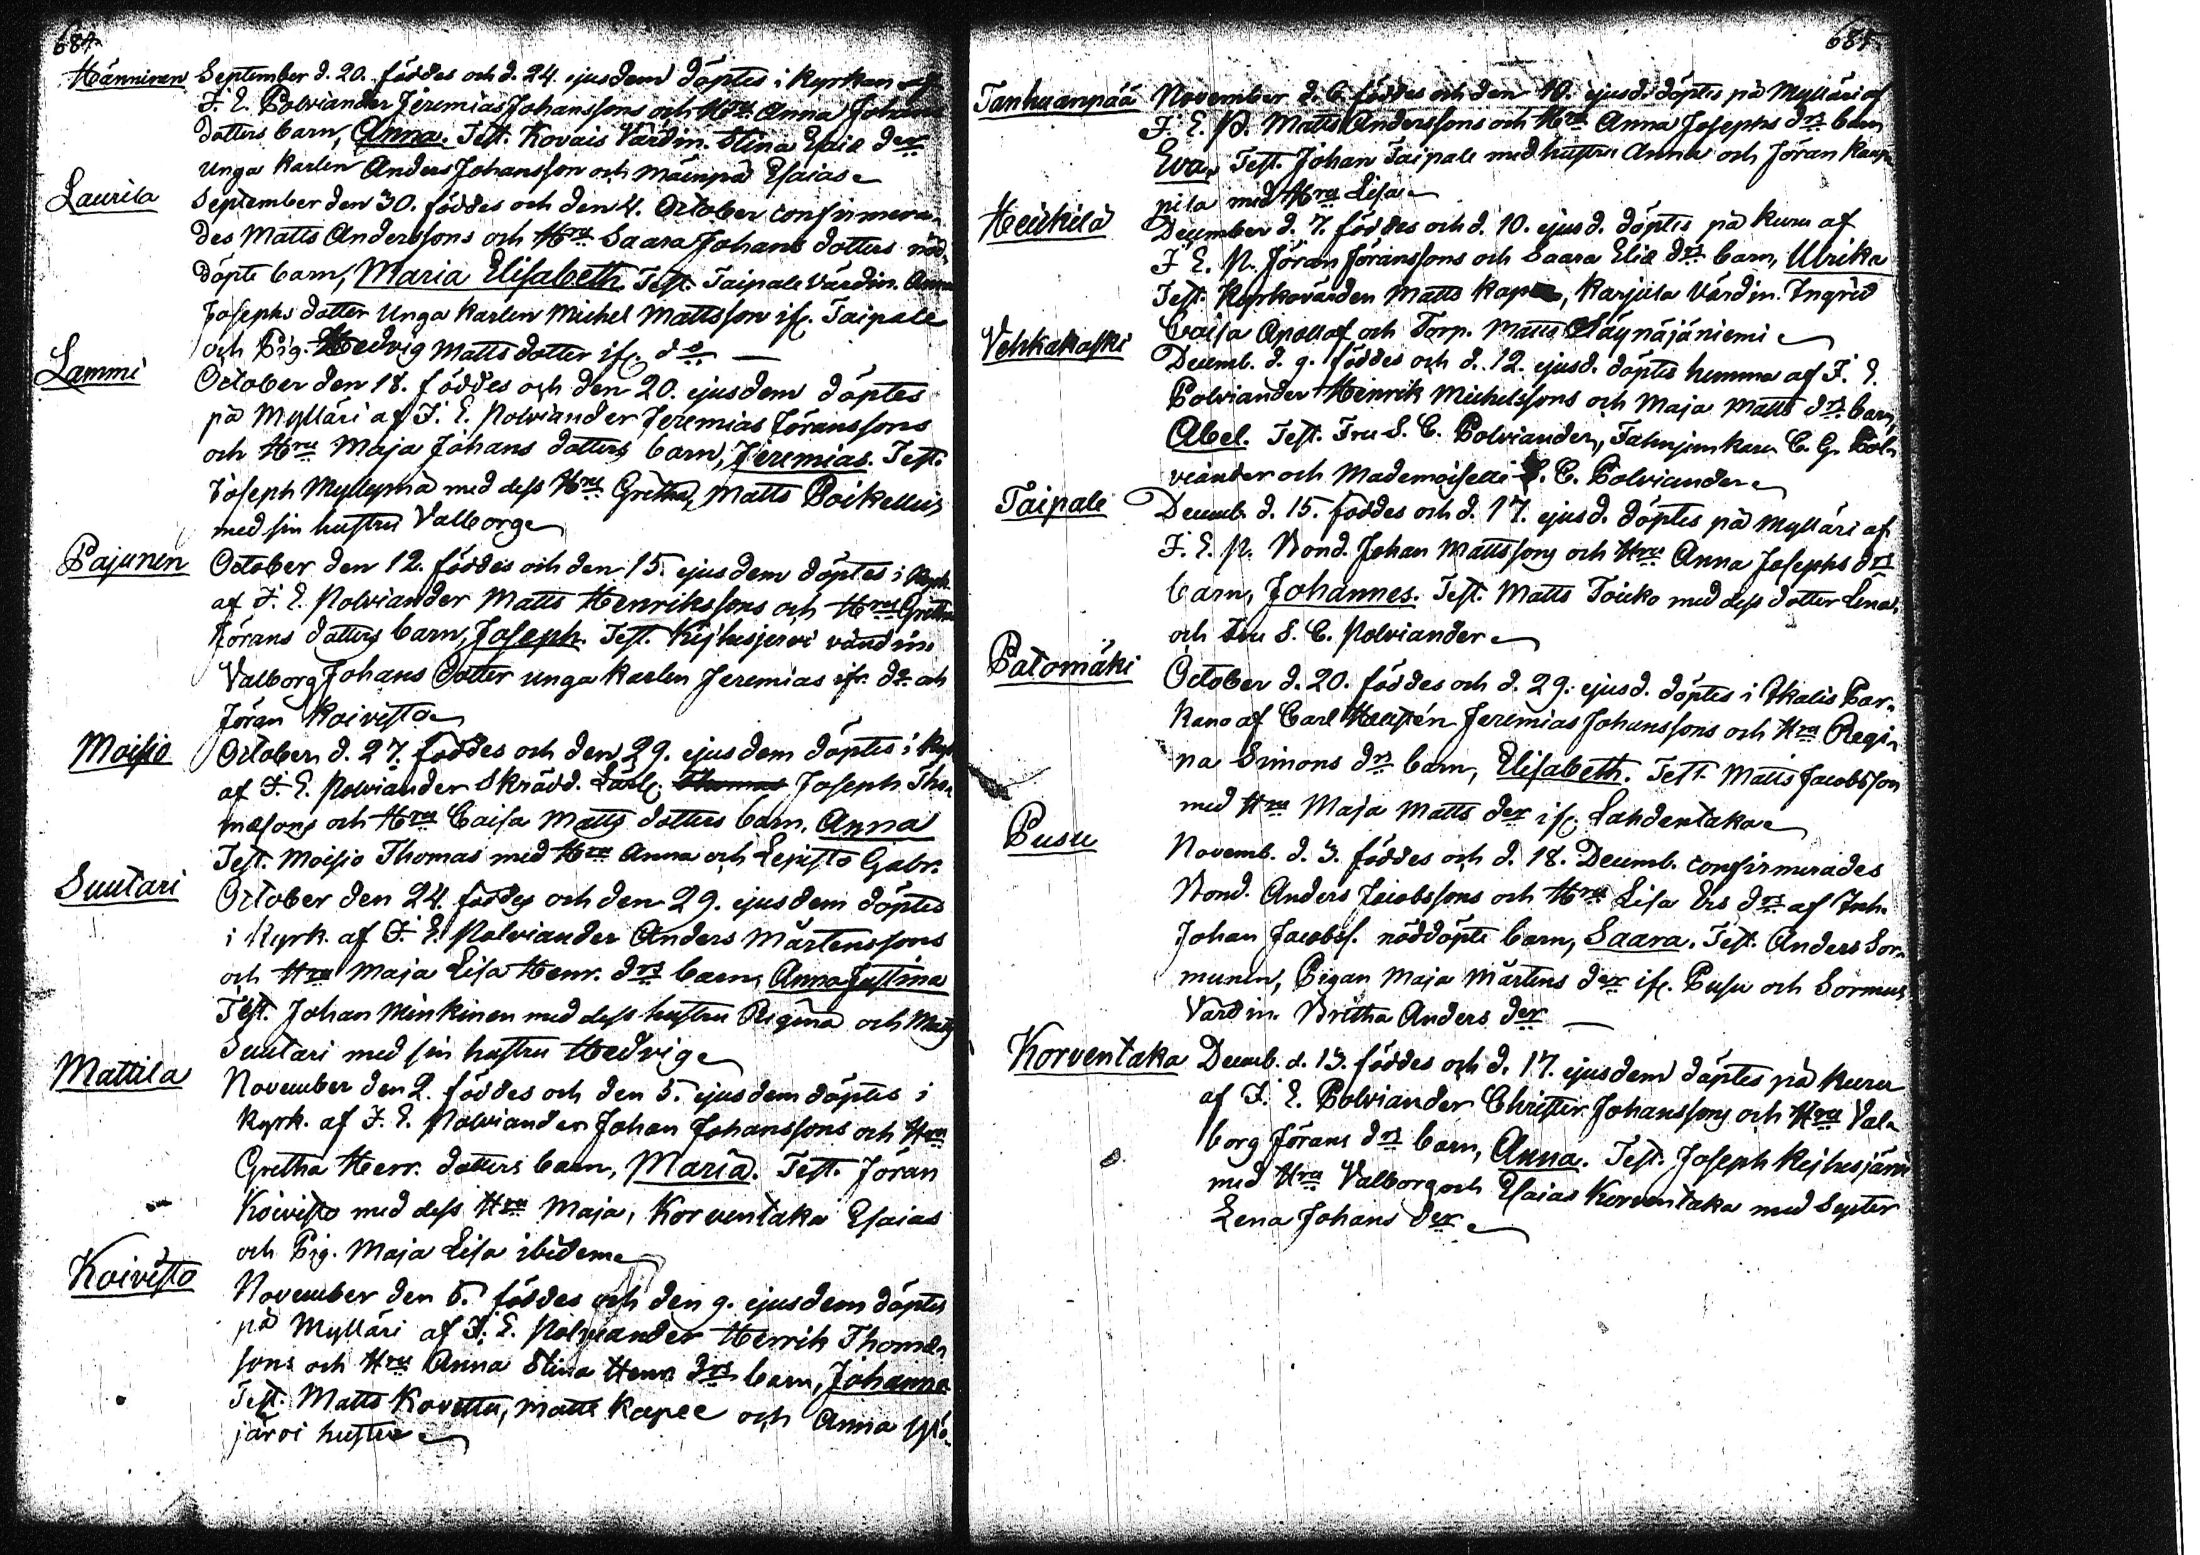 684.
Hänninen September d. 20. föddes och d. 24. ejusdem döptes i Kyrkan af
F. E. Polviander Jeremias Johanssons och Hru Anna Johans
dotters barn, Anna. Test. Kovais Värdin. Stina Esaiæ der
unga Karlen Anders Johansson och Mäinpää Esaias
Laurila September den 30. föddes och den 4. October confirmera-
des Matts Anderssons och Hru Saara Johans dotters nöd-
döpte barn, Maria Elisabeth. Test. Taipale Värdin. Anna
Josephs dotter Unga Karlen Michel Mattsson if. Taipale
och Pig. Hedvig Matts dotter if. do
Lammi October den 18. föddes och den 20. ejusdem döptes
på Mylläri af F. E. Polviander Jeremias Jöranssons
och Hru Maja Johans dotters barn, Jeremias. Test.
Joseph Myllymä med dess Hru Gretha, Matts Poikellus
med sin hustru Valborg
Pajunen October den 12. föddes och den 15. ejusdem döptes i Kyrk.
af F. E. Polviander Matts Henrikssons och Hrus Gretha
Jörans dotters barn, Joseph. Test. Kejhusjervi värdin.
Valborg Johans dotter unga Karlen Jeremias if. do och
Jöran Koivisto
Moisio October d. 27. föddes och den 29. ejusdem döptes i Kyrk
af F. E. Polviander Skrädd. Lärl. Thomas Joseph Tho-
massons och Hru Caisa Matts dotters barn, Anna
Test. Moisio Thomas med Hru Anna och Lepistö Gabr.
Suutari October den 24. föddes och den 29. ejusdem döptes
i Kyrk. af F. E. Polviander Anders Mårtenssons
och Hru Maja Lisa Henr. drs barn, Anna Justina
Test. Johan Minkinen med dess hustru Regina och Matts
Suutari med sin hustru Hedvig
Mattila November den 2. föddes och den 5. ejusdem döptes i
Kyrk. af F. E. Polviander Johan Johanssons och Hru
Gretha Henr. dotters barn, Maria. Test. Jöran
Koivisto med dess Hru Maja, Korventaka Esaias
och Pig. Maja Lisa ibidem
Koivisto November den 6. föddes och den 9. ejusdem döptes
på Mylläri af F. E. Polviander Henrik Thomas-
sons och Hru Anna Stina Henr. drs barn, Johanna
Test. Matts Kovettu, Matts Kapee och Anna Ylä-
järvi hustru
685.
Tanhuanpää November d. 6. föddes och den 10. ejusd. döptes på Mylläri af
F. E. P. Matts Anderssons och Hru Anna Josephs drs barn
Eva. Test. Johan Taipale med hustru Anna och Jöran Kaup-
pila med Hru Lisa
Heickilä December d. 7. föddes och d. 10. ejusd. döptes på Kuru af
F. E. P. Jöran Jöranssons och Saara Eliæ drs barn, Ulrika
Test. Kyrkovärden Matts Kapee, Karjula Värdin. Ingrid
Caisa Apollof och Torp. Matts Säynäjäniemi
Vehkakoski Decemb. d. 9. föddes och d. 12. ejusd. döptes hemma af F. E.
Polviander Henrik Michelssons och Maja Matts drs barn,
Abel. Test. Fru S. C. Polviander, Fahnjunkare C. G. Pol-
viander och Mademoiselle S. C. Polviander
Taipale Decemb. d. 15. föddes och d. 17. ejusd. döptes på Mylläri af
F. E. P. Bond. Johan Mattssons och Hru Anna Josephs drs
barn, Johannes. Test. Matts Toicko med dess dotter Lena
och Fru S. C. Polviander
Patomäki October d. 20. föddes och d. 29. ejusd. döptes i Ikalis Par-
kano af Carl Hellstén Jeremias Johanssons och Hru Regi-
na Simons drs barn, Elisabeth. Test. Matts Jacobsson
med Hru Maja Matts der if. Lahdentaka
Pusu Novemb. d. 3. föddes och d. 18. Decemb. confirmerades
Bond. Anders Jacobssons och Hru Lisa Ers drs af Inh.
Johan Jacobss. nöddöpte barn, Saara. Test. Anders Sor-
munen, Pigan Maja Mårtens der if. Pusu och Sormus
Värdin. Britha Anders der
Korventaka Decemb. d. 13. föddes och d. 17. ejusdem döptes på Kuru
af F. E. Polviander Christer Johanssons och Hru Val-
borg Jörans drs barn, Anna. Test. Joseph Kejhusjärvi
med Hru Valborg och Esaias Korventaka med Syster
Lena Johans der